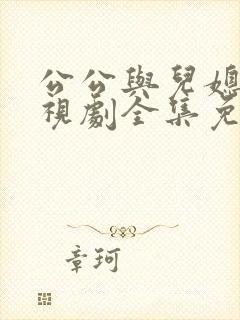 公公與兒媳
視劇全集免
章珂